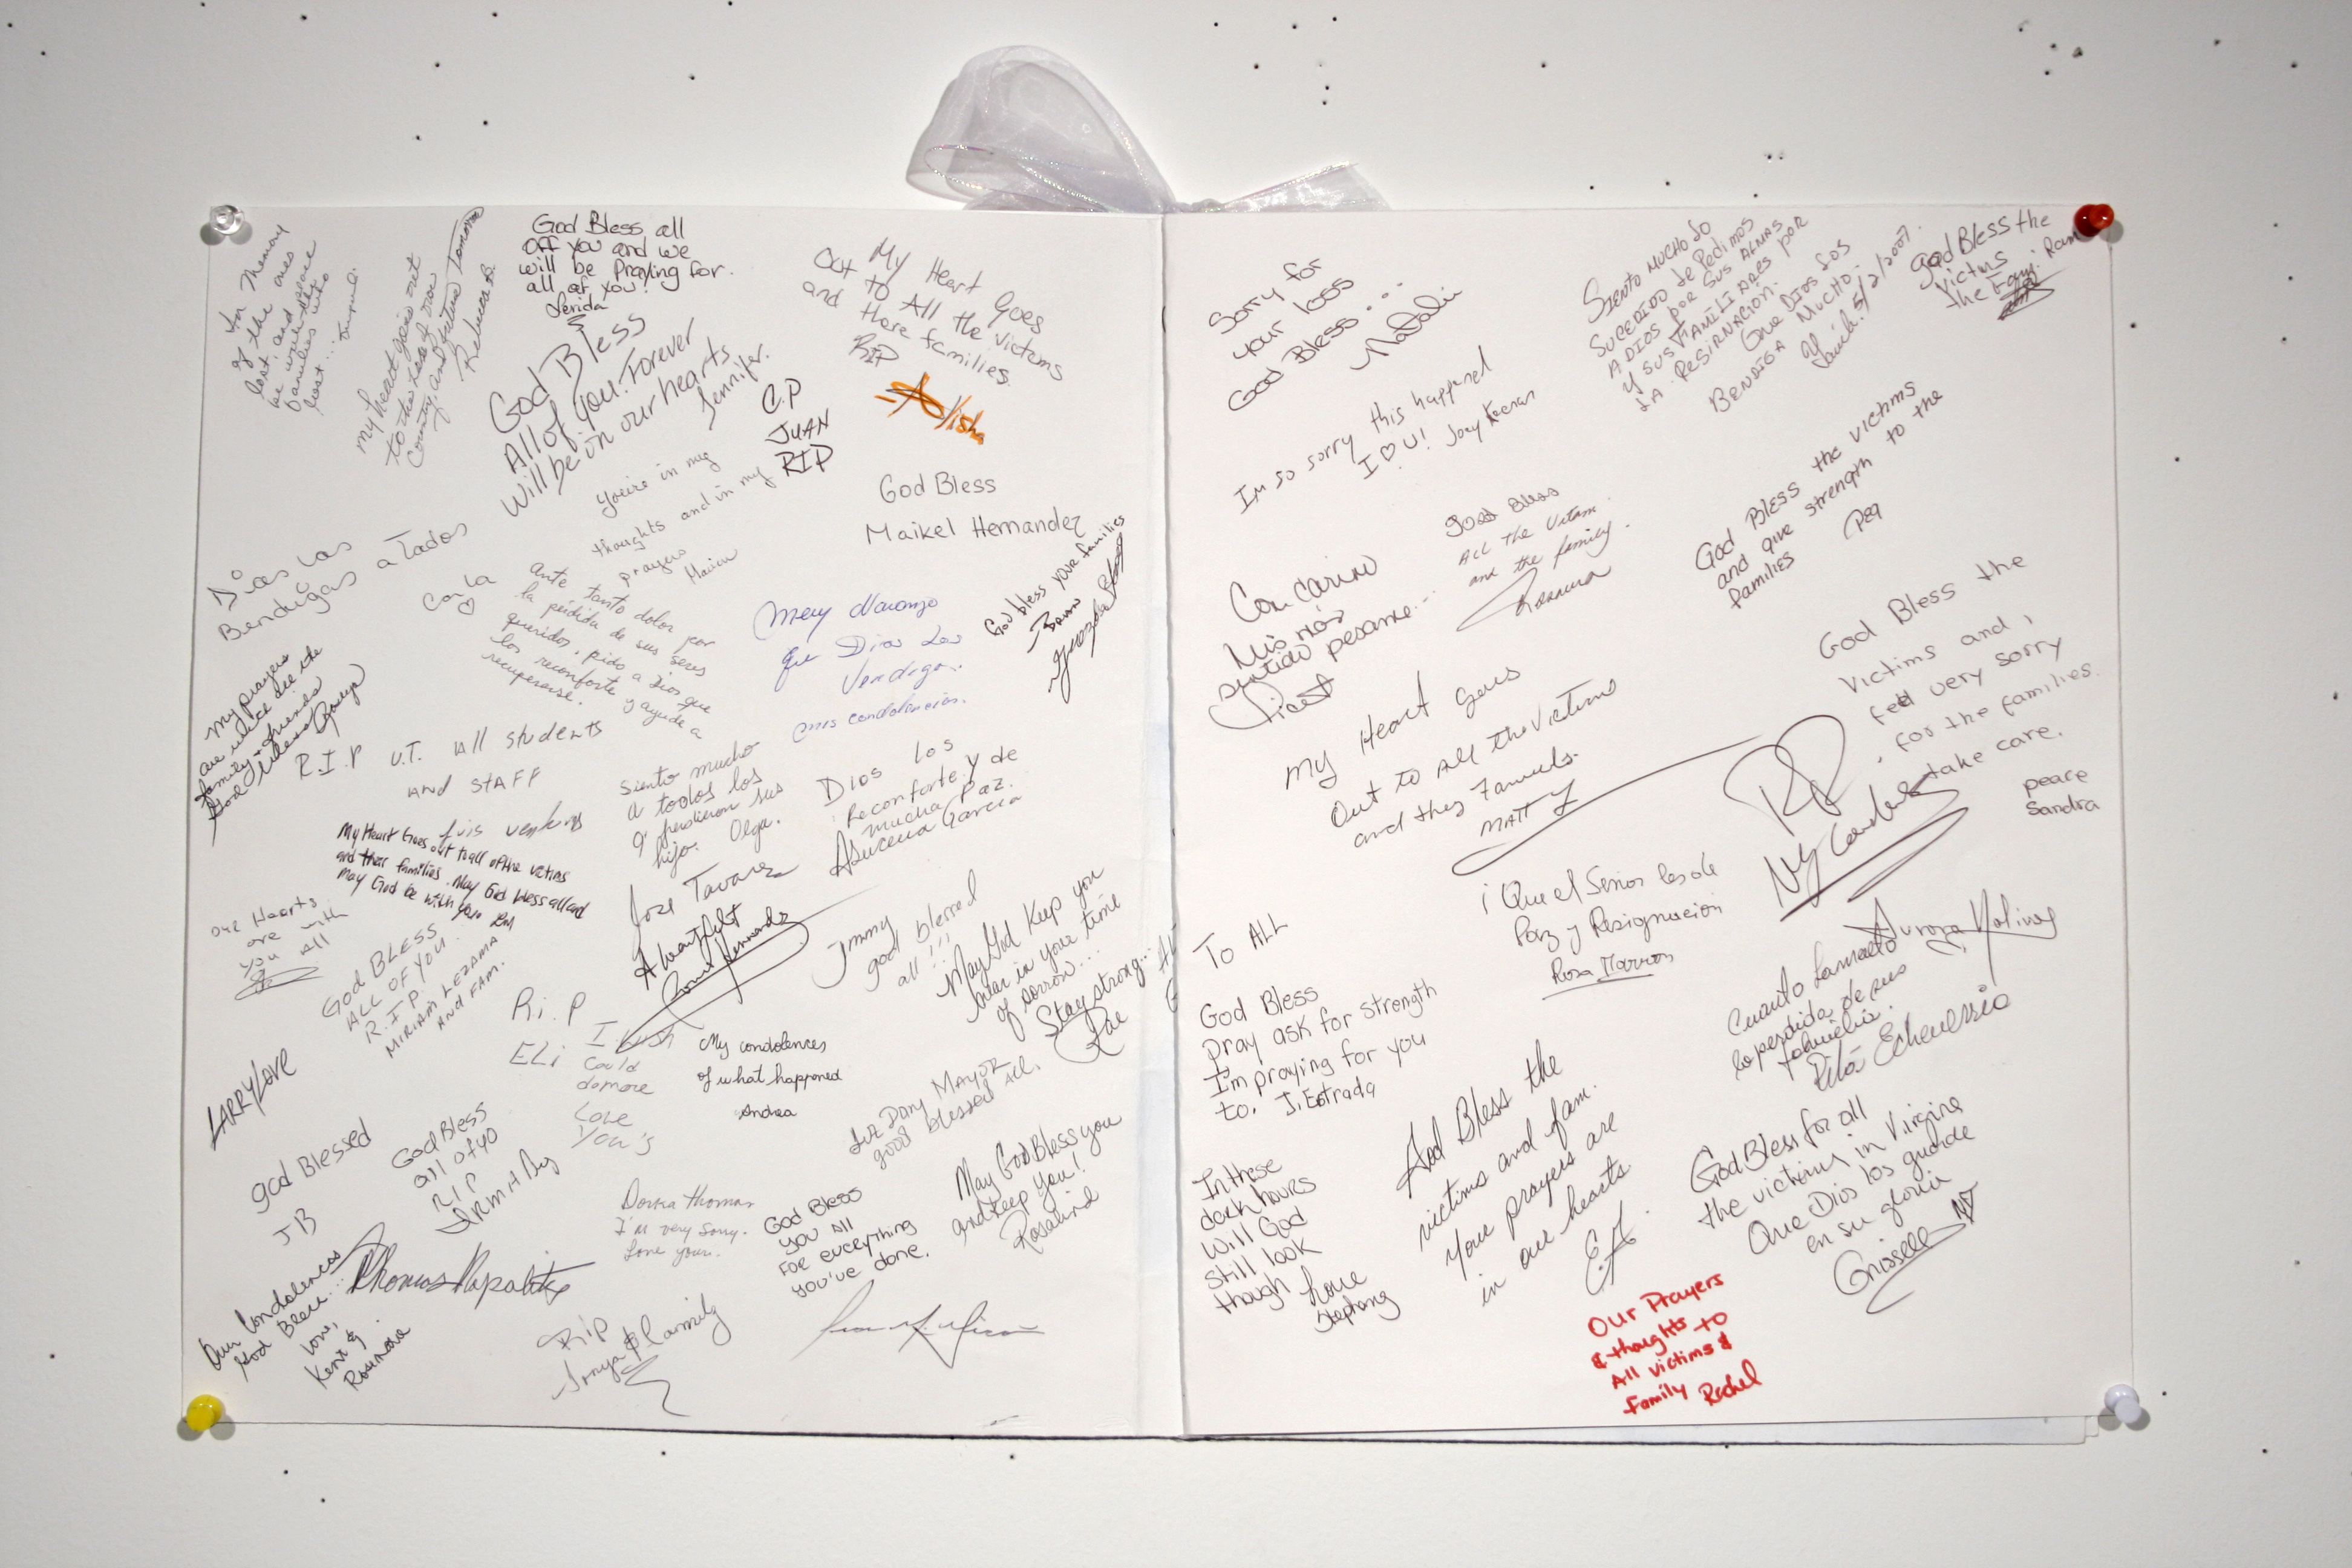 In Memory
of the ones
lost, and peace
be with the
families who
lost...
my heart goes out
to the loss of now
Country, and future tomorrow
Rebecca B.
God Bless all
Off you and we
will be praying for.
all of you!
Lerida
God Bless
All of you. Forever
will be in our hearts
Jennifer.
My Heart Goes
Out to All the victims
and there families.
RIP
Alisha
C.P
JUAN
RIP
you're in my
thoughts and in my
prayers
God Bless
Maikel Hernandez
God bless your families
Dios los
Bendigas a Todos
Carla
Ante tanto dolor por
la pérdida de sus seres
queridos, pido a Dios que
los reconforte y ayude a
recuperarse.
Mery Naranjo
que Dios Los
Vendiga..
mis condolencias.
my prayers
are with all the
family & friends
God Bless
R.I.P U.T. All students
and staff
siento mucho
a todos los
q' perdieron sus
hijo. Olga.
Dios los
Reconforte y de
mucha Paz.
Asucena Garcia
My Heart Goes out to all of the victims
and their families. May God bless all and
may God be with you
Jose Tavarez
our Hearts
are with
you all
God BLESS
ALL OF YOU.
R.I.P.
MIRIAM LEZAMA
AND FAM.
Jimmy
god blessed
all!!!
May God Keep you
near in your time
of sorrow...
Stay strong...
Rae
R.i.P
ELi
I wish
Could
do more
Love
You's
My condolences
of what happened
Andrea
LARRY LOVE
Dony Mayor
good blessed All.
god Blessed
JB
God Bless
all of yo
RIP
Donna Thomas
I'm very sorry.
Love you.
God Bless
you all
For everything
you've done.
May God Bless you
and keep you!
Rosalind
Our Condolences
God Bless...
Love,
Kent &
Rosemarie
Thomas
RIP
Sonya & family
Sorry for
your loss
God Bless...
Natali
Im so sorry this happened
I ♡ U! Joey
SIENTO MUCHO LO
SUCEDIDO Le Pedimos
A DIOS POR SUS ALMAS
Y SUS FAMILIARES POR
LA RESIRNACION.
Que DIOS LOS
BENDIGA Mucho.
5/2/2007.
God Bless the
Victms
the Fam.
good Bless
All the Vitam
and the family.
Rosanna
God Bless the victims
and give strength to the
families
Con Cariño
Mis más
sentido pesame..
My Heart Goes
Out to all the Victims
and they Familys.
MATT
God Bless the
Victims and i
feel very sorry
for the families.
take care.
peace
Sandra
RIP
¡Que el Señor les de
Paz y Resignacion
Rosa Marron
Aurora Molina
To ALL
God Bless
pray ask for strength
I'm praying for you
to. J. Estrada
Cuanto Lamento
la perdida de sus
familia.
Rita Echeverria
In these
dark hours
Will God
still look
though
Love
Stephany
God Bless the
victims and fam.
Your prayers are
in our hearts.
God Bless for all
the victims in Virgine
Que Dios los guarde
en su gloria
Grissell
Our Prayers
& thoughts to
All victims &
Family Rachel